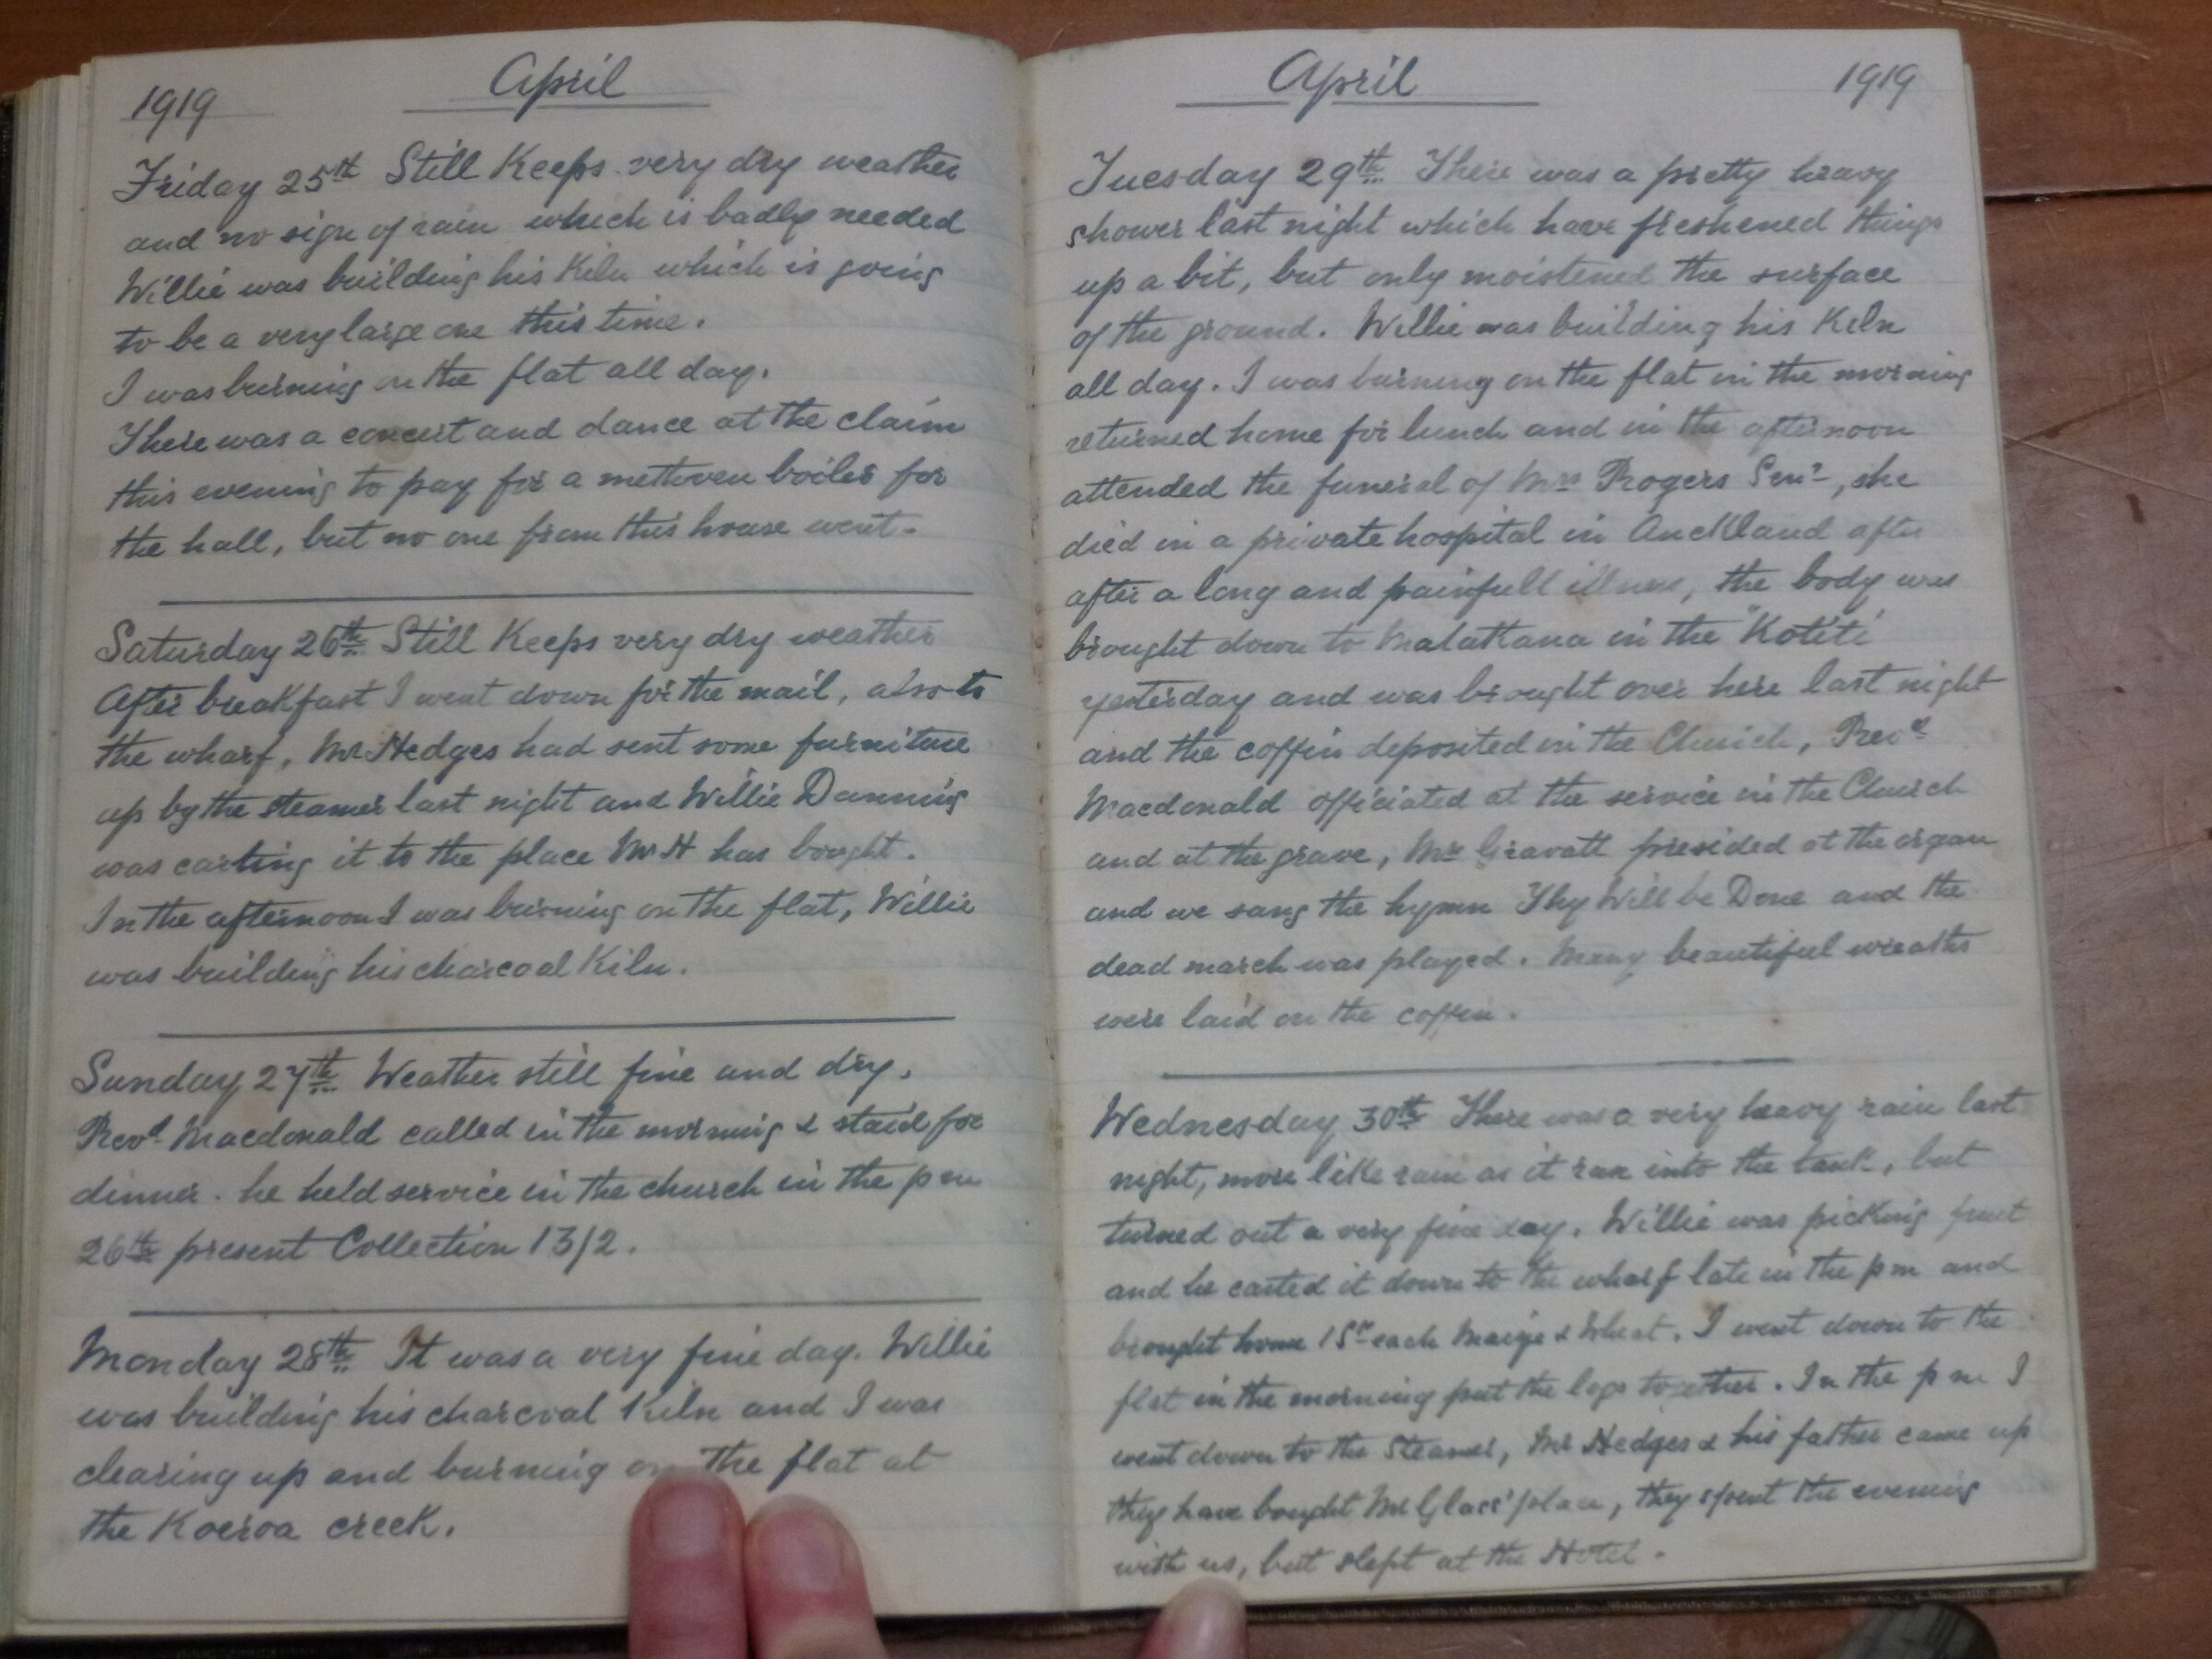 1919
April
Friday 25th Still Keeps very dry weather
and no sign of rain which is badly needed
Willie was building his Kiln which is going
to be a very large one this time.
I was burning on the flat all day.
There was a concert and dance at the claim
this evening to pay for a methven boiler for
the hall, but no one from this house went.
Saturday 26th Still Keeps very dry weather
After breakfast I went down for the mail, also to
the wharf, Mr Hedges had sent some furniture
up by the steamer last night and Willie Dunning
was carting it to the place Mr H has bought.
In the afternoon I was burning on the flat, Willie
was building his charcoal Kiln.
Sunday 27th Weather still fine and dry.
Revd Macdonald called in the morning & staid for
dinner. he held service in the church in the p m
26th present Collection 13/2.
Monday 28th It was a very fine day. Willie
was building his charcoal Kiln and I was
clearing up and burning on the flat at
the Koeroa creek.
April
1919
Tuesday 29th There was a pretty heavy
shower last night which have freshened things
up a bit, but only moistened the surface
of the ground. Willie was building his Kiln
all day. I was burning on the flat in the morning
returned home for lunch and in the afternoon
attended the funeral of Mrs Rogers Senr, she
died in a private hospital in Auckland after
after a long and painfull illness, the body was
brought down to Matakana in the "Kotiti"
yesterday and was brought over here last night
and the coffin deposited in the Church, Revd
Macdonald officiated at the service in the Church
and at the grave, Mrs Gravatt presided at the organ
and we sang the hymn Thy Will be Done and the
dead march was played. Many beautiful wreaths
were laid on the coffin.
Wednesday 30th There was a very heavy rain last
night, more like rain as it ran into the tank, but
turned out a very fine day. Willie was picking fruit
and he carted it down to the wharf late in the p m and
brought home each Maize & Wheat. I went down to the
flat in the morning put the logs together. In the p m I
went down to the Steamer, Mr Hedges & his father came up
they have bought Mr Glass' place, they spent the evening
with us, but slept at the Hotel.